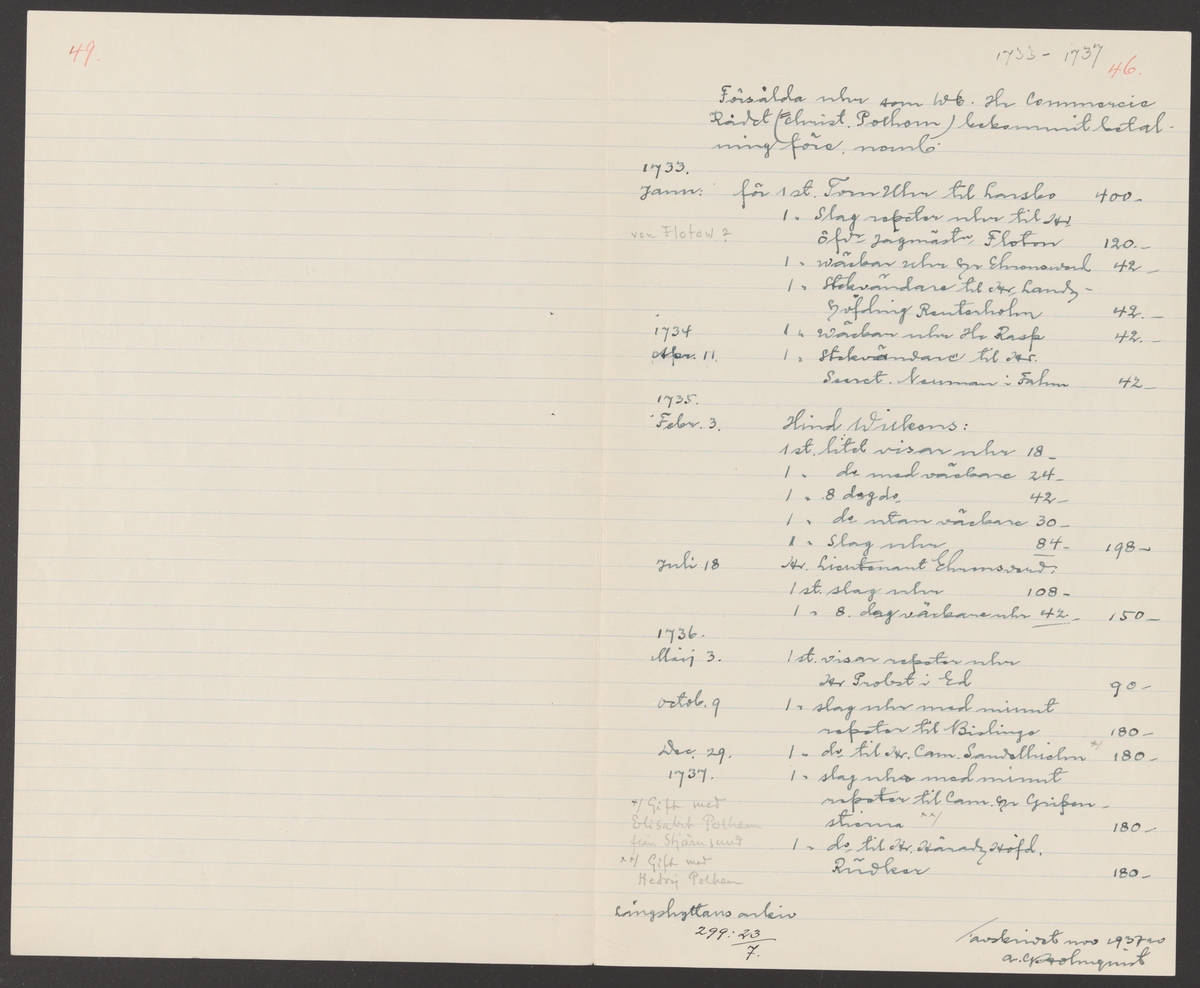 49.
1733 - 1737
46.
Försålda uhr som Wb. Hr Commercie
Rådet (Christ. Polhem) bekommit betal-
ning före, nembl.
1733.
Jann: för 1 st. Torn Uhr til Larsbo 400-
1 " Slag repeter uhr til Hr
von Flotow? öfvr Jägmästr, Floton 120.-
1 " wäckar uhr Hr Ehrensverd 42-
1 " Stekvändare til Hr. Landz-
Höfding Reuterholm 42.-
1734 1 " wäckar uhr Hr Rasp 42.-
Apr. 11. 1 " Stekvändare til Hr.
Secret. Neuman i Falun 42-
1735.
Febr. 3. Hind Wickens:
1 st. litel visar uhr 18-
1 " do med väckare 24-
1 " 8 dag do 42-
1 " do utan väckare 30-
1 " Slag uhr 84- 198-
Juli 18 Hr. Lieutenant Ehrensverd:
1 st. slag uhr 108-
1 " 8. dag väckare uhr 42- 150-
1736.
Maij 3. 1 st. visar repeter uhr
Hr Probst i Ed 90-
octob. 9 1 " slag uhr med minut
repeter til Bislinge 180-
Dec. 29. 1 " do til Hr. Cam. Sandelhielm */ 180-
1737. 1 " slag uhr med minut
repeter til Cam. Hr Gripen-
stierna **/ 180-
*/ Gift med
Elisabet Polhem
från Stjärnsund
1 " do til Hr. Häradz Höfd.
Rüdker 180-
**/ Gift med
Hedvig Polhem
Långshyttans arkiv
299: 23/7.
/avskrivet nov 1937 av
A. G. Holmquist